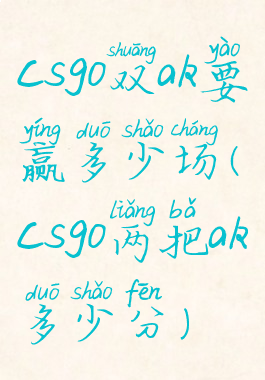 shuāng yào
csgo双ak要
yíng duō shǎo cháng
赢多少场(
liǎng bǎ
csgo两把ak
duō shǎo fēn
多少分)